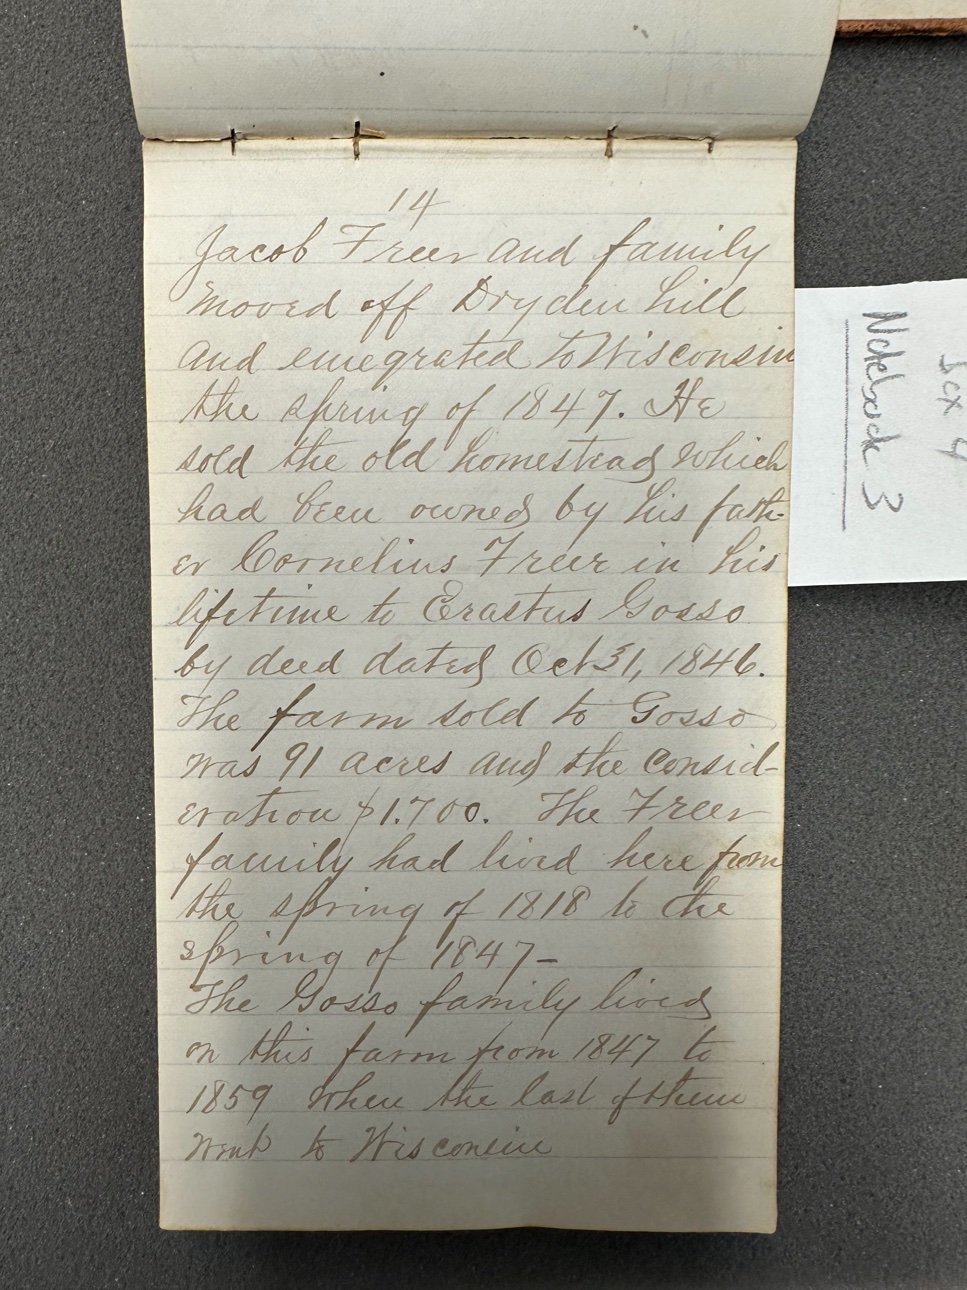 14
Jacob Freer and family
moved off Dryden hill
and emegrated to Wisconsin
the spring of 1847. He
sold the old homestead which
had been owned by his fath-
er Cornelius Freer in his
lifetime to Erastus Gosso
by deed dated Oct 31, 1846.
The farm sold to Gosso
was 91 acres and the consid-
eration $1.700. The Freer
family had lived here from
the spring of 1818 to the
spring of 1847-
The Gosso family lived
on this farm from 1847 to
1859 when the last of them
went to Wisconsin
Box 4
Notebook 3